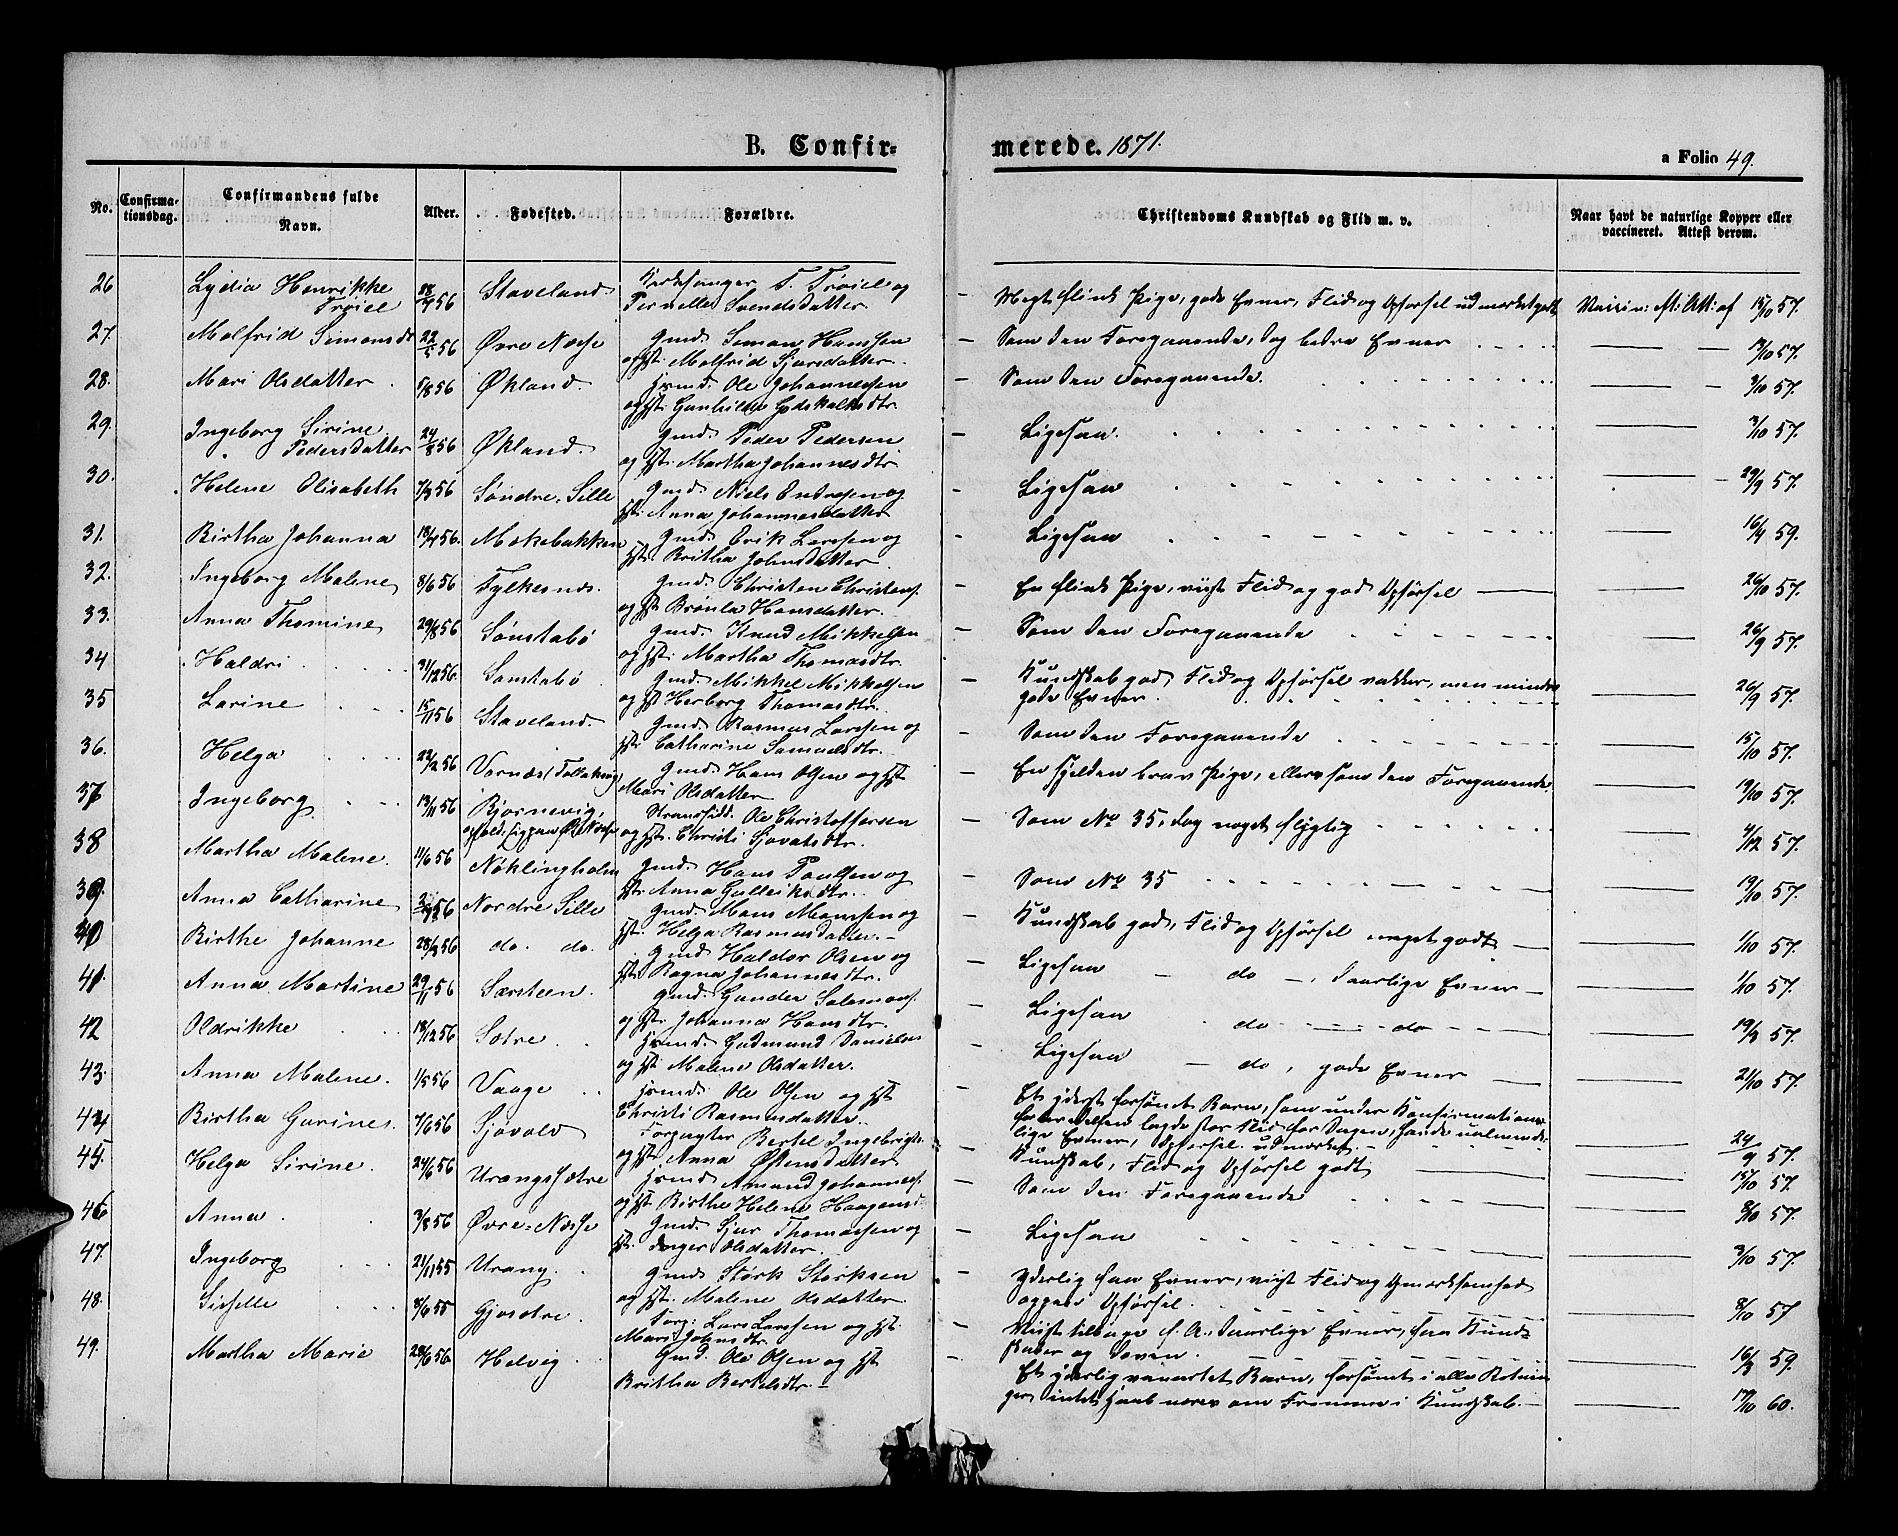 B. Confir-
merede. 1871.
a Folio 49.
No.
Confirma-
tionsdag.
Confirmandens fulde
Navn.
Alder.
Fødested.
Forældre.
Christendoms Kundskab og Flid m. v.
Naar havt de naturlige Kopper eller
vaccineret. Attest derom.
26 Lydia Henrikke Kirkesanger T. Trøiel og
Trøiel 56 Staveland. Pernelle Svendsdatter. Megt flink Pige, gode Evner, Flid og Opførsel udmærket godt 15/10 57.
27. Malfrid Simonsdt 22/5 56 Øvre Næsse Gmd. Simon Hanssen
og Hst. Malfrid Sjursdatter. Som den Foregaaende, dog bedre Evner 13/10 57.
28. Mari Olsdatter 56 Økland. Ole Johannessen
og Hst. Gunhilde Godskalksdtr. Som den Foregaaende. 3/10 57.
29. Ingeborg Sirine Gmd. Peder Pedersen
Pedersdatter 24/8 56 Økland. og Hst. Martha Johannesdtr. Ligesaa. 3/10 57.
30. Helene Elisabeth 7/3 56 Søndre Sille Gmd. Niels Endresen og
Hst. Anna Johannesdatter Ligesaa 29/9 57.
31. Birtha Johanna 56. Møkebakken Gmd. Erik Larssen og
Hst. Britha Johnsdatter. Ligesaa 59.
32. Ingeborg Malene 8/6 56 Fylkesnes. Gmd. Christen Christens.
og Hst. Brønla Hansdatter. En flink Pige, viist Flid og god Opførsel 26/10 57.
33. Anna Thomine 29/8 56 Sønstabø Gmd. Knud Mikkelsen
og Hst. Martha Thomasdtr. Som den Foregaaende 26/9 57.
34 Haldri 31/12 56. Sønstabø Gmd. Mikkel Mikkelsen
og Hst Herborg Thomasdtr. Kundskab god, Flid og Opførsel vakker, men mindre
gode Evner. 26/9 57.
35 Larine 15/11 56 Staveland. Gmd. Rasmus Larssen og
Hst. Catharine Samuelsdtr. Som den Foregaaende 15/10 57.
36. Helga 56 Vernæs Gmd. Hans Olsen og Hst
Mari Olsdatter En sjelden brav Pige, ellers som den Foregaaende. 19/10 57.
37 Ingeborg 13/11 56 Bjørnevig, Strandsidd. Ole Christoffersen
og Hst. Christi Sjovatsdtr. Som No 35, dog noget flygtig 4/12 57.
38 Martha Malene. 11/6 56 Nøklingholm Gmd. Hans Paulsen og
Hst. Anna Gulleiksdtr. Som No 35 19/10 57.
39. Anna Catharine 56 Nordre Sille Gmd. Mons Monssen og
Hst. Helga Rasmusdatter. Kundskab god, Flid og Opførsel meget godt 1/10 57.
40 Birthe Johanne 28/3 56 do. do. Gmd Haldor Olsen og
Hst. Ragna Johannesdtr. Ligesaa do, daarlige Evner 1/10 57.
41. Anna Martine 29/11 56 Særsteen. Gmd. Gunder Salomons.
og Hst. Johanna Hansdtr. Ligesaa do do 19/3 57.
42 Oldrikke 13/12 56 Sætre. Gudmund Danielsen
og Hst Malene Olsdatter. Ligesaa do, gode Evner 21/10 57.
43. Anna Malene. 1/5 56 Vaage Ole Olsen og Hst
Christi Rasmusdatter. Et yderst forsømt Barn, som under Konfirmations-
forberedelsen lagde stor Flid for Dagen, havde ualminde-
lige Evner, Opførsel udmærket 24/9 57.
44 Birtha Gurine. 7/6 56 Sjovold Forpagter Bertel Ingebrigts.
og Hst. Anna Østensdatter Kundskab, Flid og Opførsel godt 15/10 57.
45. Helga Sirine. 24/6 56 Urangsætre Amund Johannes.
og Hst Birthe Helene Haagensd. Som den Foregaaende 8/10 57.
46 Anna 3/8 56 Øvre-Næsse Gmd. Sjur Thomassen og
Hst. Inger Olsdatter. Ligesaa 3/10 57.
47. Ingeborg 21/11 55 Urang Gmd Størk Størksen
og Hst. Malene Olsdatter Yderlig faa Evner, viist Flid og Opmærksomhed
Opførsel. 8/10 57
48. Sisselle 55 Gjosætre. Forp: Lars Larssen og Hst.
Mari Johnsdtr. Meget tilbage f. A. daarlige Evner, faa Kund-
skaber og doven. 16/3 59.
49. Martha Marie 28/6 56 Helvig Gmd. Ole Olsen og Hst
Britha Bertelsdtr. Et yderlig vanartet Barn, forsømt i alle Retnin-
ger, intet Haab om Fremme i Kundskab. 17/10 60.